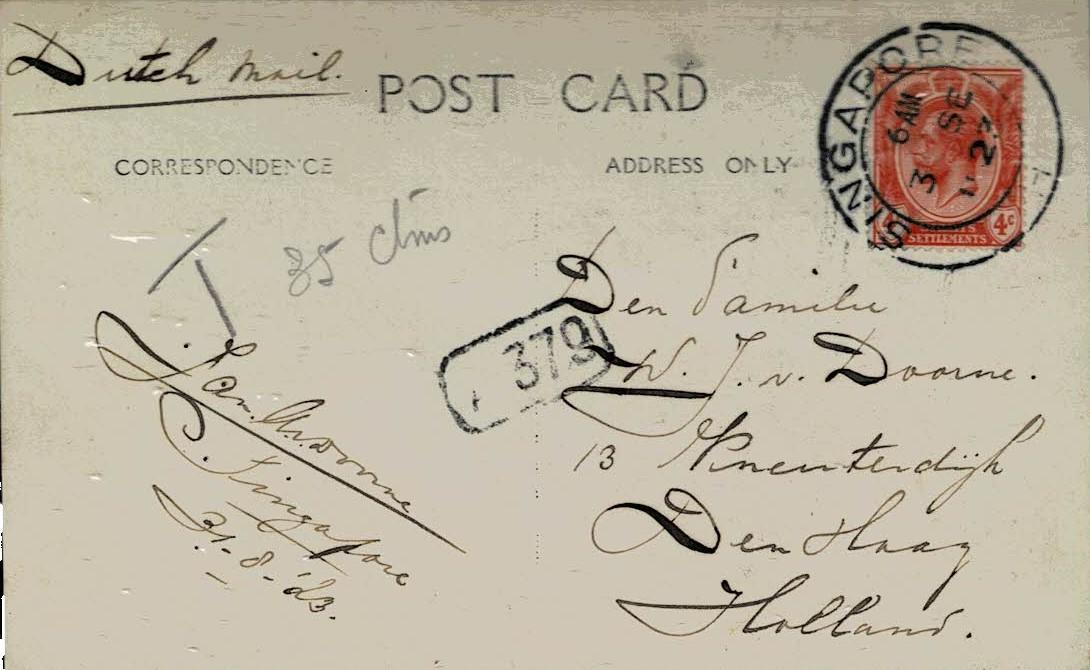 Dutch Mail.
POST CARD
CORRESPONDENCE
ADDRESS ONLY
SINGAPORE
6 AM
3 SE
SETTLEMENTS
4c
T 35 ctms
379
Den Familie
W. J. v. Doorne.
13 Kneuterdijk
Den Haag
Holland.
Jan
Singapore
31-8-'23.